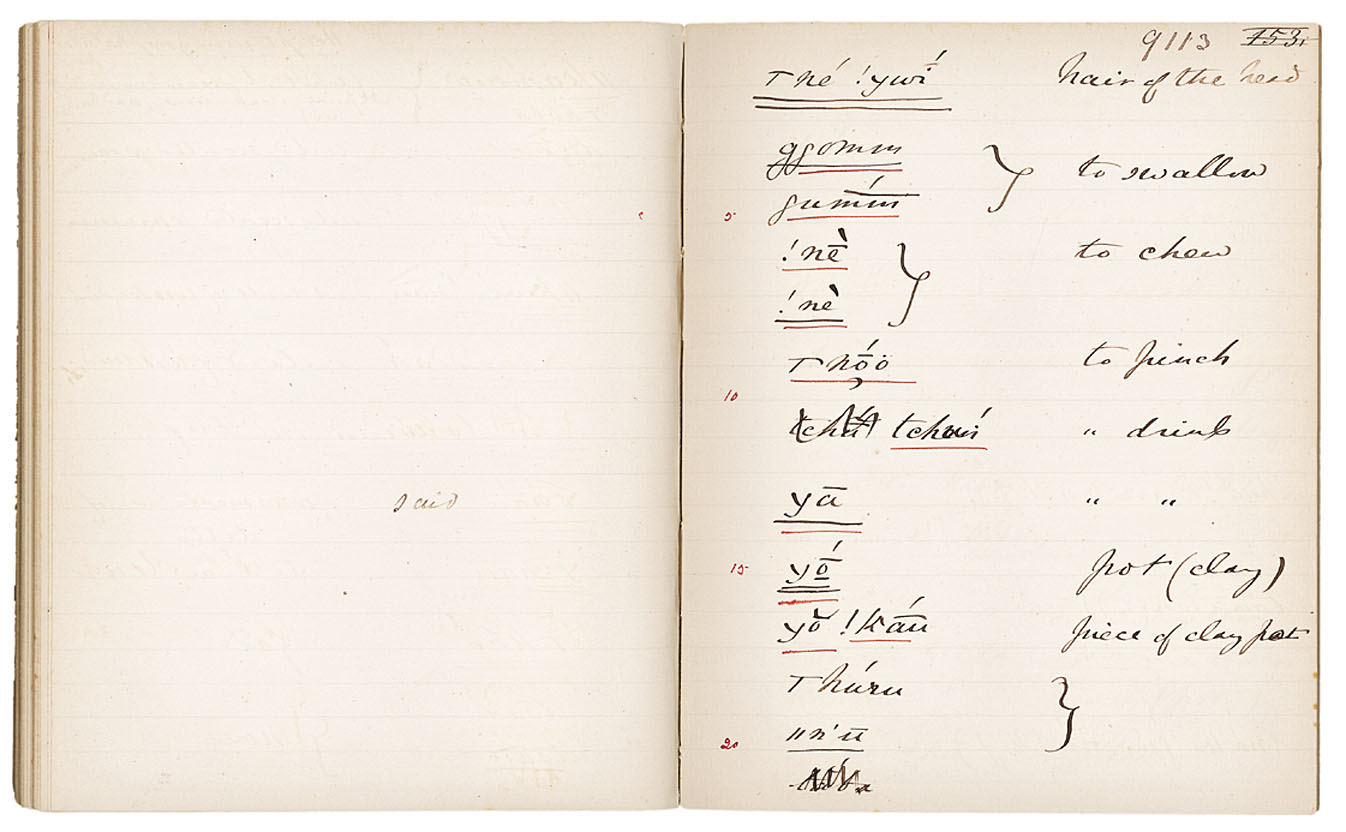 said
9113 153.
⊤né !ywī́ hair of the head
ggomm
gumm̄́ to swallow
5
!nḕ to chew
!nè
⊤nóö to pinch
10
tchuń „ drink
yā „ „
15 yṓ pot (clay)
yŏ !kā́u piece of clay pot
⊤húru
20 ǁn'ū